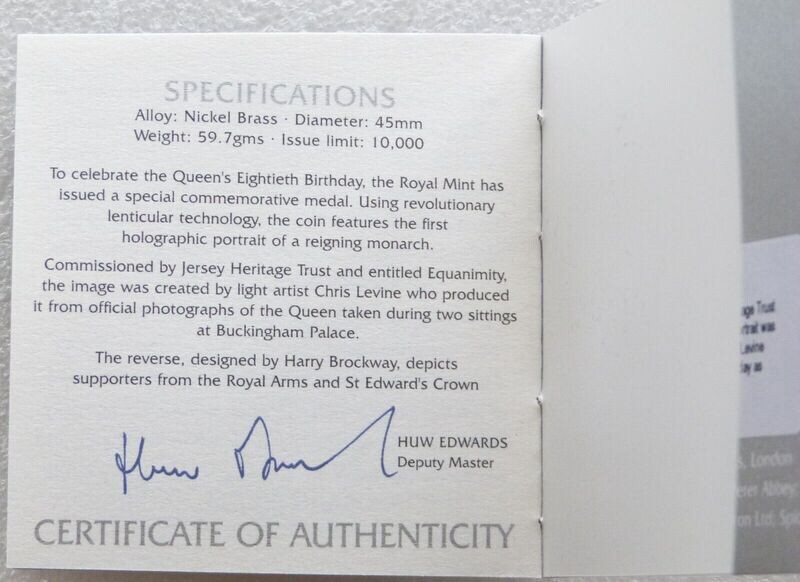 SPECIFICATIONS
Alloy: Nickel Brass · Diameter: 45mm
Weight: 59.7gms · Issue limit: 10,000
To celebrate the Queen's Eightieth Birthday, the Royal Mint has
issued a special commemorative medal. Using revolutionary
lenticular technology, the coin features the first
holographic portrait of a reigning monarch.
Commissioned by Jersey Heritage Trust and entitled Equanimity,
the image was created by light artist Chris Levine who produced
it from official photographs of the Queen taken during two sittings
at Buckingham Palace.
The reverse, designed by Harry Brockway, depicts
supporters from the Royal Arms and St Edward's Crown
Huw
HUW EDWARDS
Deputy Master
CERTIFICATE OF AUTHENTICITY
Trust
was
Levine
as
London
Abbey;
Ltd;